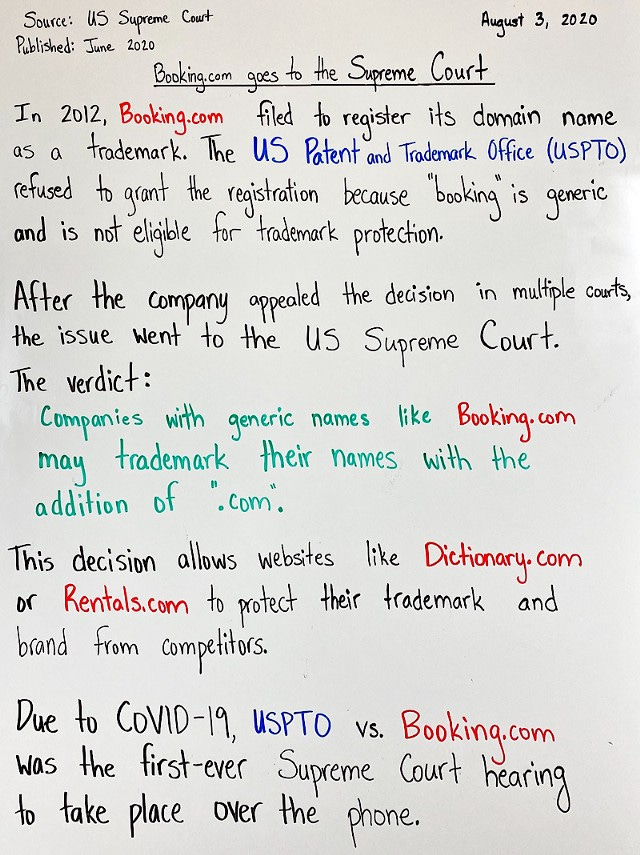 Source: US Supreme Court
August 3, 2020
Published: June 2020
Booking.com goes to the Supreme Court
In 2012, Booking.com filed to register its domain name
as a trademark. The US Patent and Trademark Office (USPTO)
refused to grant the registration because "booking" is generic
and is not eligible for trademark protection.
After the company appealed the decision in multiple courts,
the issue went to the US Supreme Court.
The verdict:
Companies with generic names like Booking.com
may trademark their names with the
addition of ".com".
This decision allows websites like Dictionary.com
or Rentals.com to protect their trademark and
brand from competitors.
Due to COVID-19, USPTO vs. Booking.com
was the first-ever Supreme Court hearing
to take place over the phone.